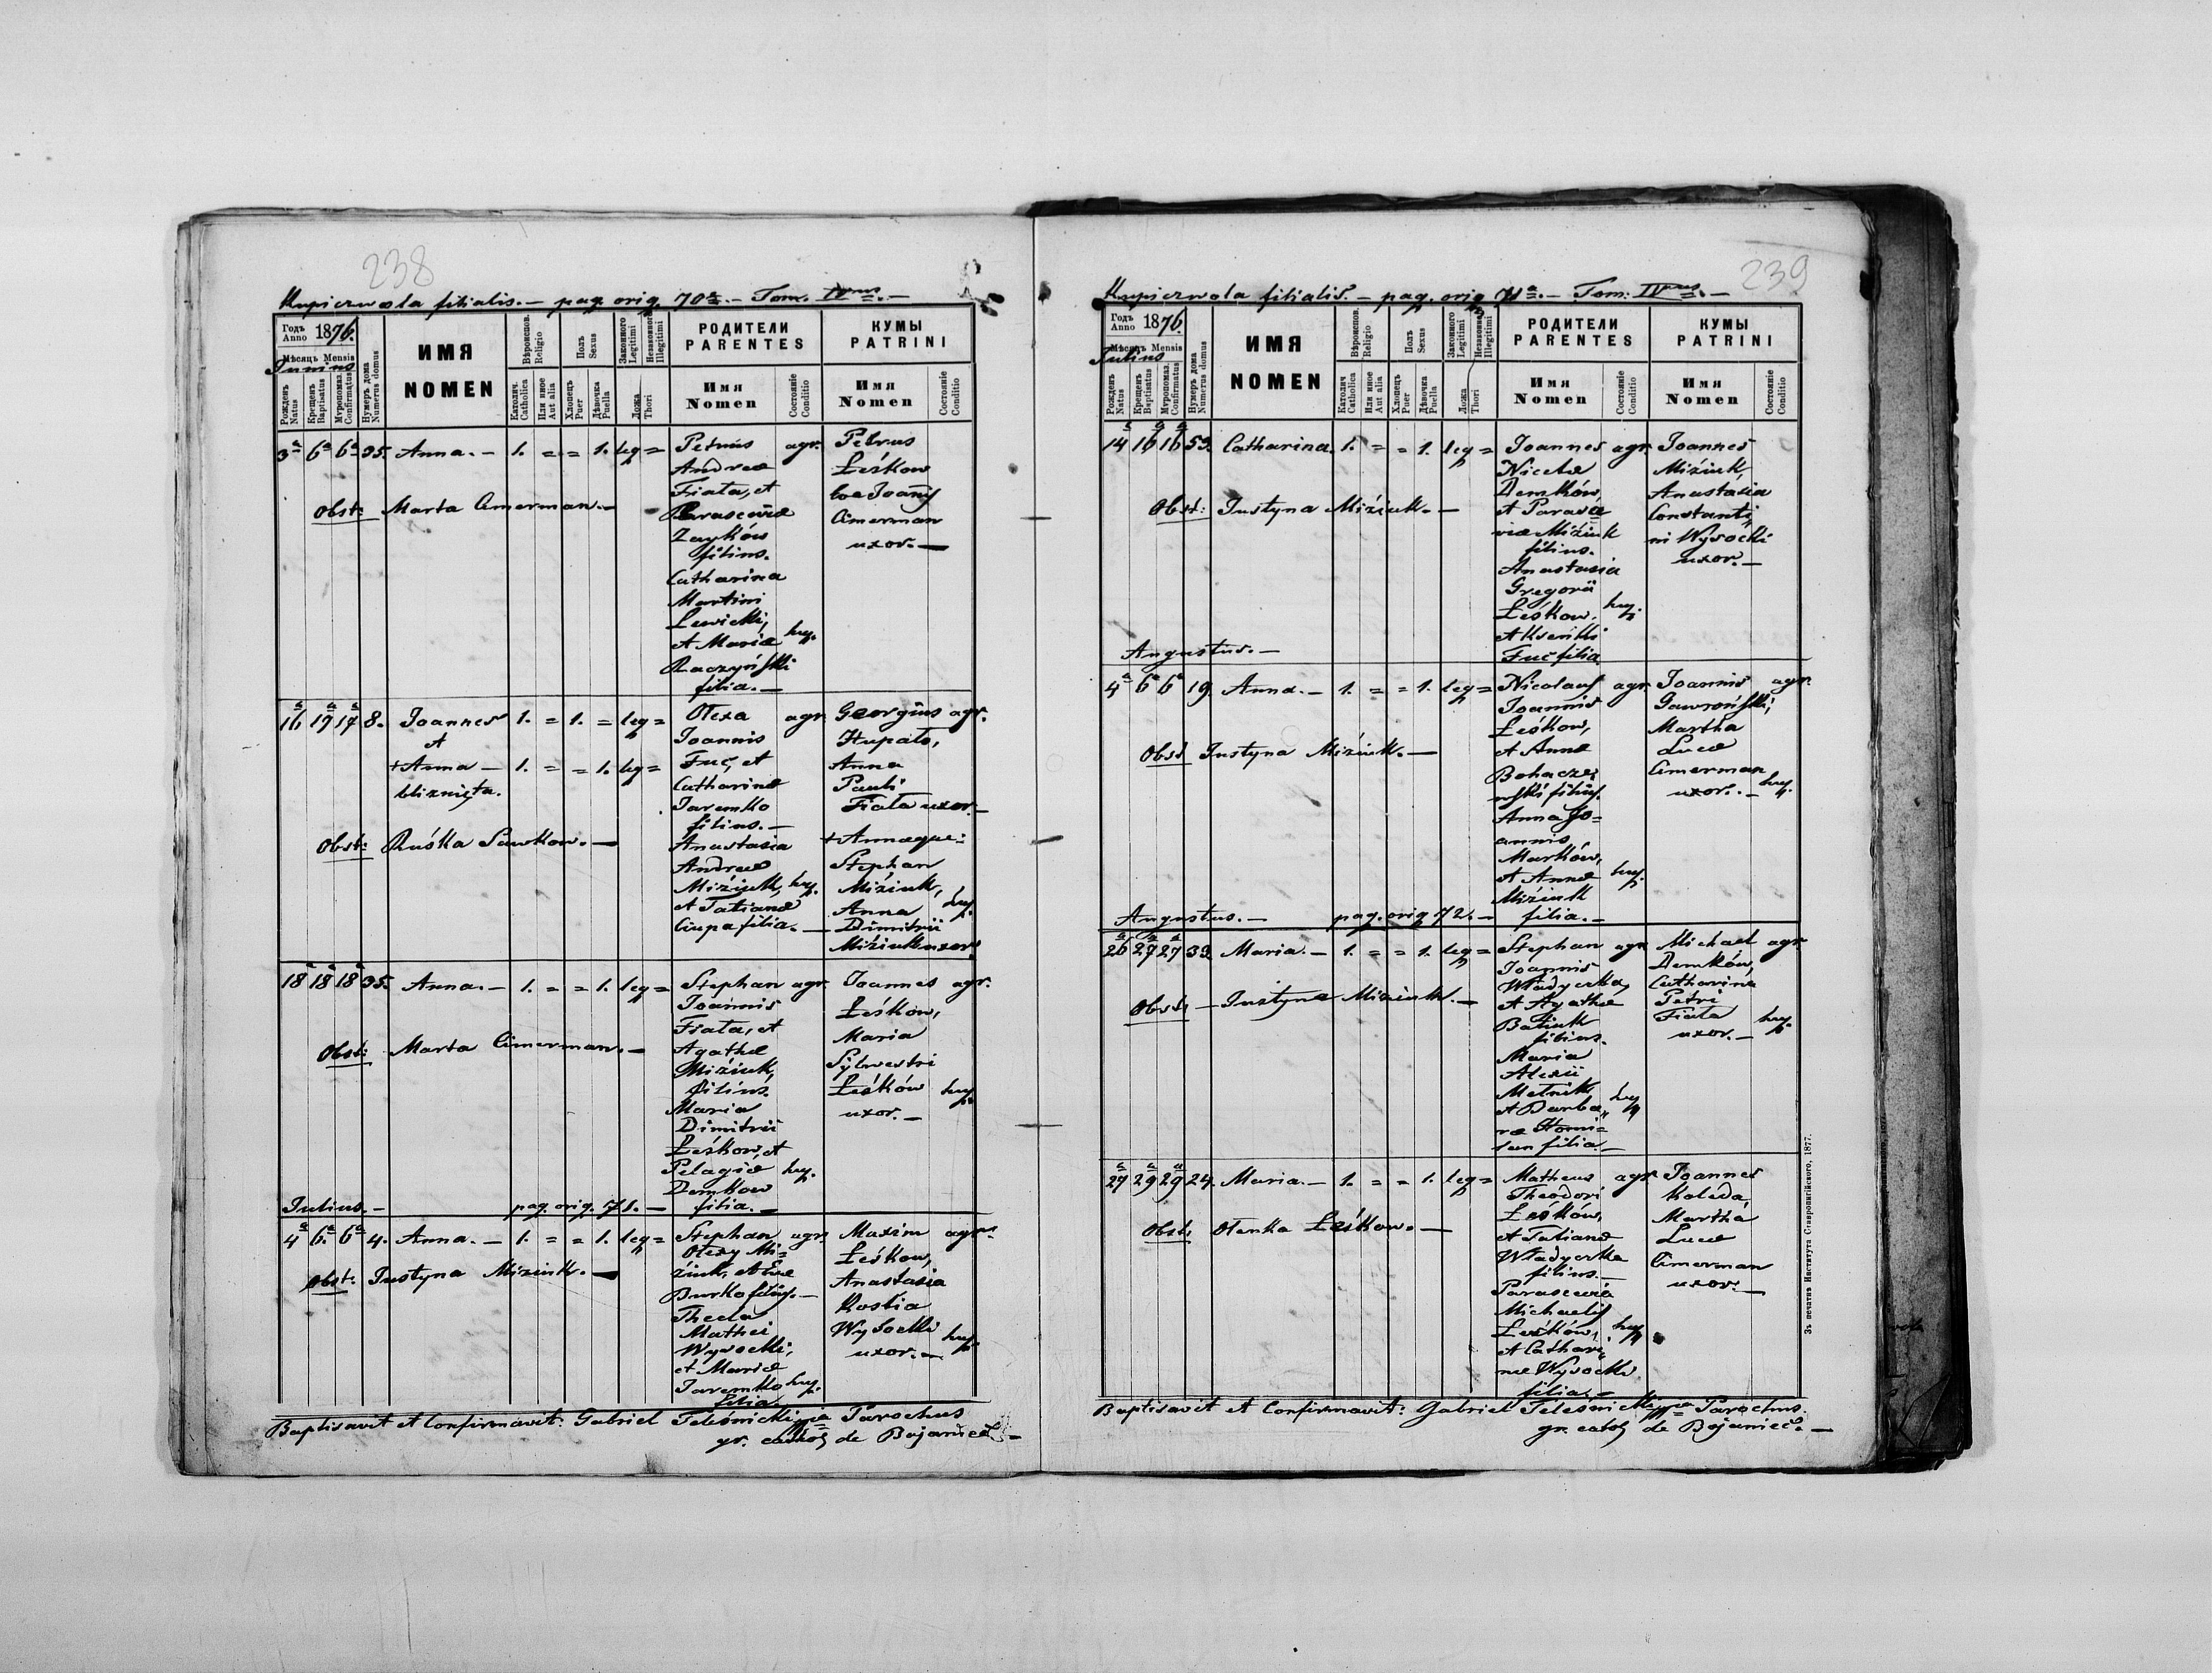 238
Kupiczwola filialis. — pag. orig. 70ª. — Tom. IVus. —
Годъ Anno 1876.
Мѣсяцъ Mensis
Junius
Рожденъ Natus
Крещенъ Baptisatus
Мѵропомаз. Confirmatus
Нумеръ дома Numerus domus
ИМЯ
NOMEN
Вѣроиспов. Religio
Католич. Catholica
Или иное Aut alia
Полъ Sexus
Хлопецъ Puer
Дѣвочка Puella
Законного Legitimi
Незаконного Illegitimi
Ложа Thori
РОДИТЕЛИ
PARENTES
Имя
Nomen
Состояніе Conditio
КУМЫ
PATRINI
Имя
Nomen
Состояніе Conditio
3ª 6ª 6ª 35. Anna. — 1. = = 1. leg =
Obst: Marta Cimerman. —
Petrus agr.
Andreae
Fiała, et
Parasceviae
Zayków
filius.
Catharina
Martini
Lewicki,
et Mariae huj.
Raczyński
filia. —
Petrus
Leśkow
Joañis
Cimerman
uxor. —
16ª 17ª 17ª 8. Joannes 1. = 1. = leg =
et
+ Anna — 1. = = 1. leg =
bliznięta.
Obst: Ruśka Sawkow. —
Olexa agr.
Joannis
Fuč, et
Catharinae
Jaremko
filius. —
Anastasia
Andreae
Miziuk, huj.
et Tatianae
Ciupa filia. —
Georgius agr.
Hupało,
Anna
Pauli
Fiała uxor. —
+ Annaeque:
Stephan
Miziuk,
Anna huj.
Dimitrii
Miziuk uxor.
18ª 18ª 18ª 35. Anna. — 1. = = 1. leg =
Obst: Marta Cimerman. —
Stephan agr.
Joannis
Fiała, et
Agathae
Miziuk,
filius.
Maria
Dimitrii
Leśkow, et
Pelagiae huj.
Demkow
filia. —
Joannes agr.
Leśkow,
Maria
Sylwestri
Leśków huj.
uxor. —
Julius. — pag. orig. 71. —
4ª 6ª 6ª 4. Anna. — 1. = = 1. leg =
Obst: Justyna Miziuk. —
Stephan agr.
Olexy Mi=
ziuk, et Evae
Burko filius. —
Thecla
Mathei
Wysocki,
et Mariae
Jaremko huj.
filia.
Maxim agr.
Leśkow,
Anastasia
Kostia
Wysocki huj.
uxor. —
Baptisavit et Confirmavit: Gabriel Teleśnicki mpia Parochus
gr. cathol. de Bojaniec —
239
Kupiczwola filialis. — pag. orig. 71ª. — Tom: IVus. —
Годъ Anno 1876.
Мѣсяцъ Mensis
Julius
Рожденъ Natus
Крещенъ Baptisatus
Мѵропомаз. Confirmatus
Нумеръ дома Numerus domus
ИМЯ
NOMEN
Вѣроиспов. Religio
Католич. Catholica
Или иное Aut alia
Полъ Sexus
Хлопецъ Puer
Дѣвочка Puella
Законного Legitimi
Незаконного Illegitimi
Ложа Thori
РОДИТЕЛИ
PARENTES
Имя
Nomen
Состояніе Conditio
КУМЫ
PATRINI
Имя
Nomen
Состояніе Conditio
14ª 16ª 16ª 53. Catharina. 1. = = 1. leg =
Obst: Justyna Miziuk. —
Joannes agr.
Nicetae
Demków,
et Parasce
viae Miziuk
filius.
Anastasia
Gregorii
Leśkow, huj.
et Kseńki
Fuč filia
Joannes
Miziuk,
Anastasia
Constanti,,
ni Wysocki
uxor. —
Augustus. —
4ª 6ª 6ª 19. Anna. — 1. = = 1. leg =
Obst Justyna Miziuk. —
Nicolaus agr.
Joannis
Leśkow,
et Annae
Bohacze,,
wski filius.
Anna Jo=
annis
Marków,
et Annae huj.
Miziuk
filia. —
Joannis agr.
Gawroński,
Martha
Lucae
Cimerman
uxor. — huj.
Augustus. — pag. orig 72. —
26ª 27ª 27ª 39. Maria. — 1. = = 1. leg =
Obst: — Justyna Miziuk. —
Stephan agr.
Joannis
Władyczka,
et Agathae
Batiuk
filius.
Maria
Alexii
Melnik
et Barba,, huj
rae
filia. —
Michael agr.
Demków,
Catharina
Petri
Fiała huj.
uxor. —
27ª 29ª 29ª 24. Maria. — 1. = = 1. leg =
Obst: Olenka Leśkow. —
Matheus agr.
Theodori
Leśków,
et Tatianae
Władyczka
filius. —
Parascevia
Michaelis
Leśków, huj.
et Cathari,,
nae Wysocki
filia. —
Joannes
Koleda,
Martha
Lucae
Cimerman
uxor. —
Baptisavit et Confirmavit: Gabriel Teleśnicki mpia Parochus.
gr. cathol. de Bojaniec. —
Зъ печатнѣ Института Ставропигійского, 1877.